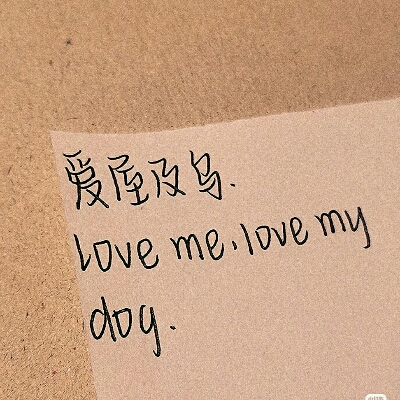 爱屋及乌.
love me, love my
dog.